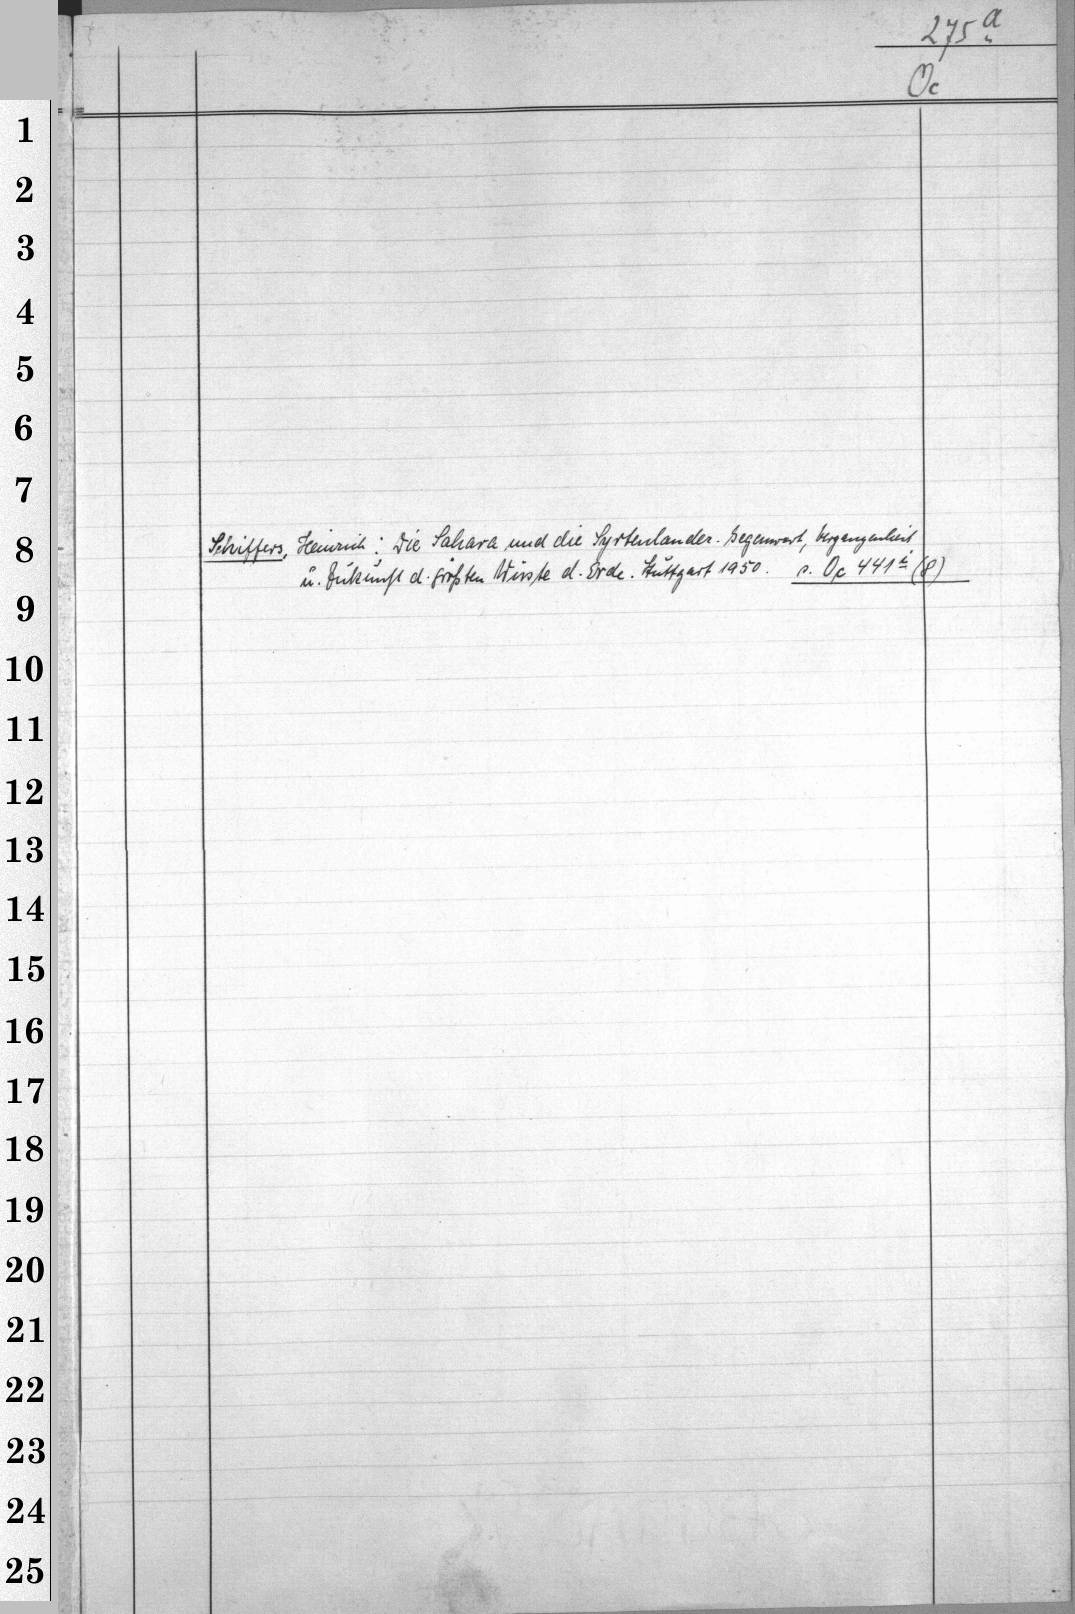 275 a
Oc
1
2
3
4
5
6
7
8
Schiffers, Heinrich: Die Sahara und die Syrtenländer. Gegenwart, Vergangenheit
u. Zukunft d. größten Wüste d. Erde. Stuttgart 1950. s. Oc 441 (8)
9
10
11
12
13
14
15
16
17
18
19
20
21
22
23
24
25